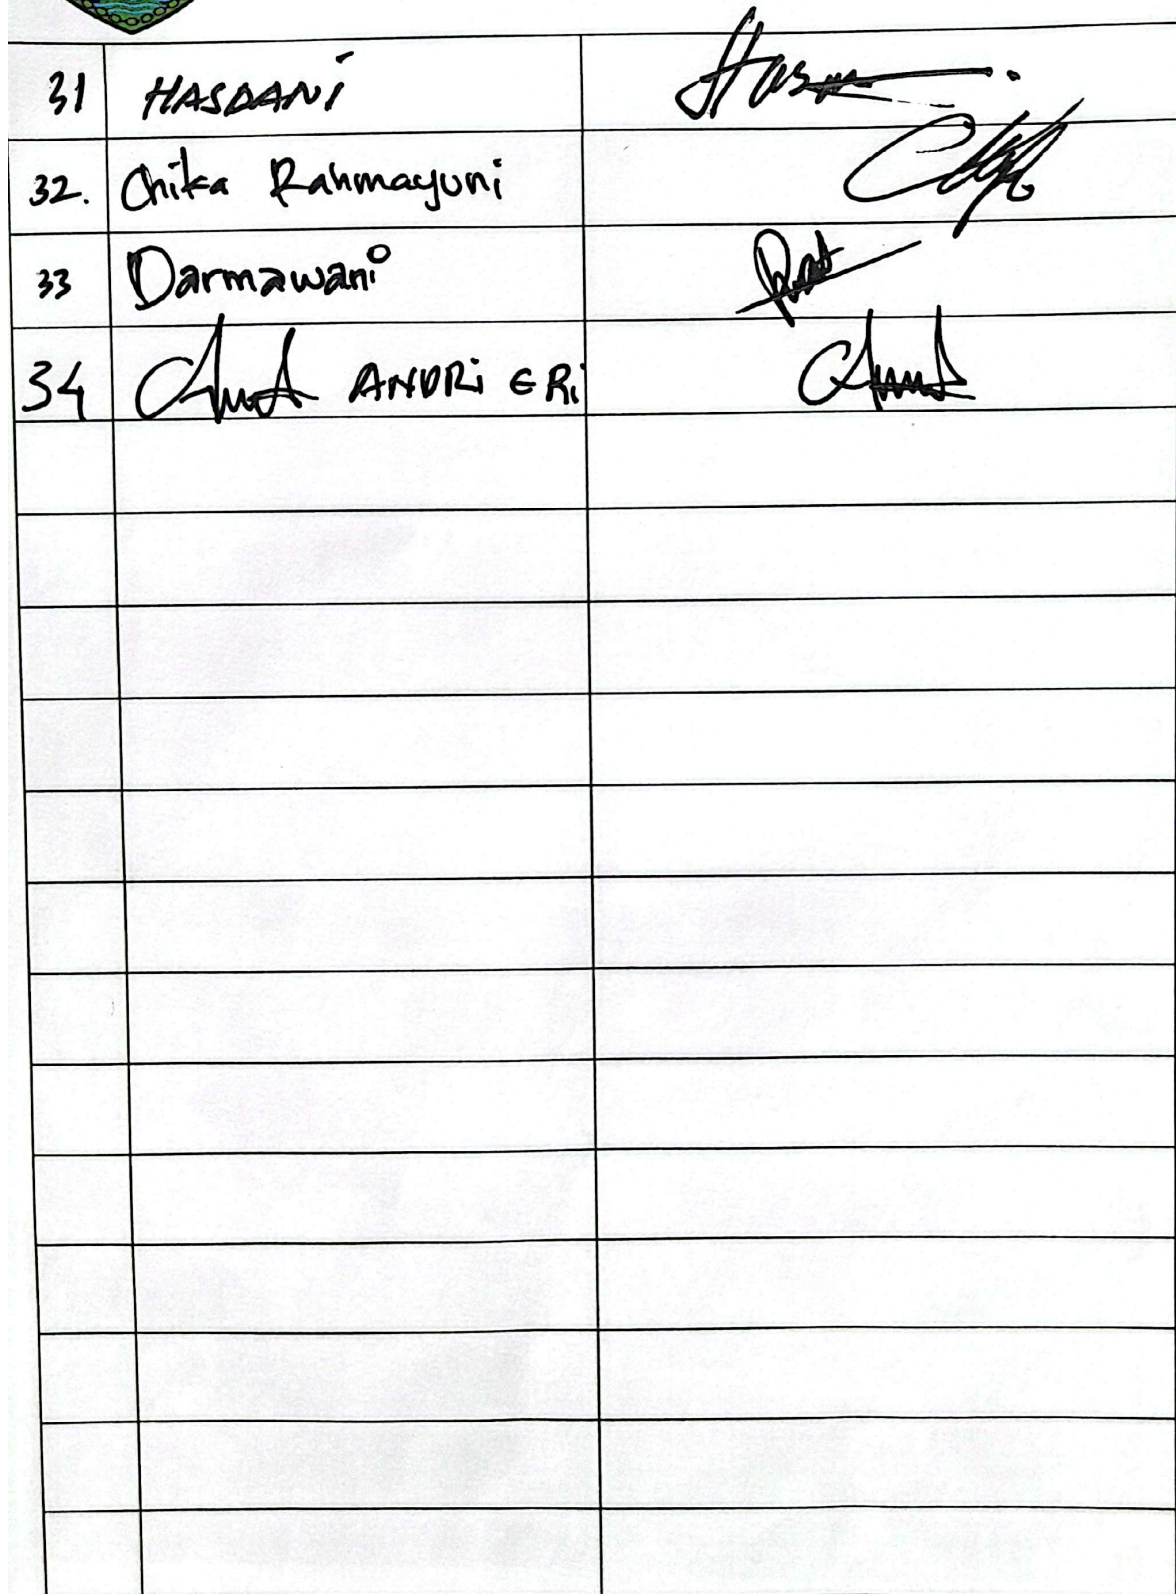 31 HASDANI
32. Chika Rahmayuni
33 Darmawani
34 ANDRi ERi